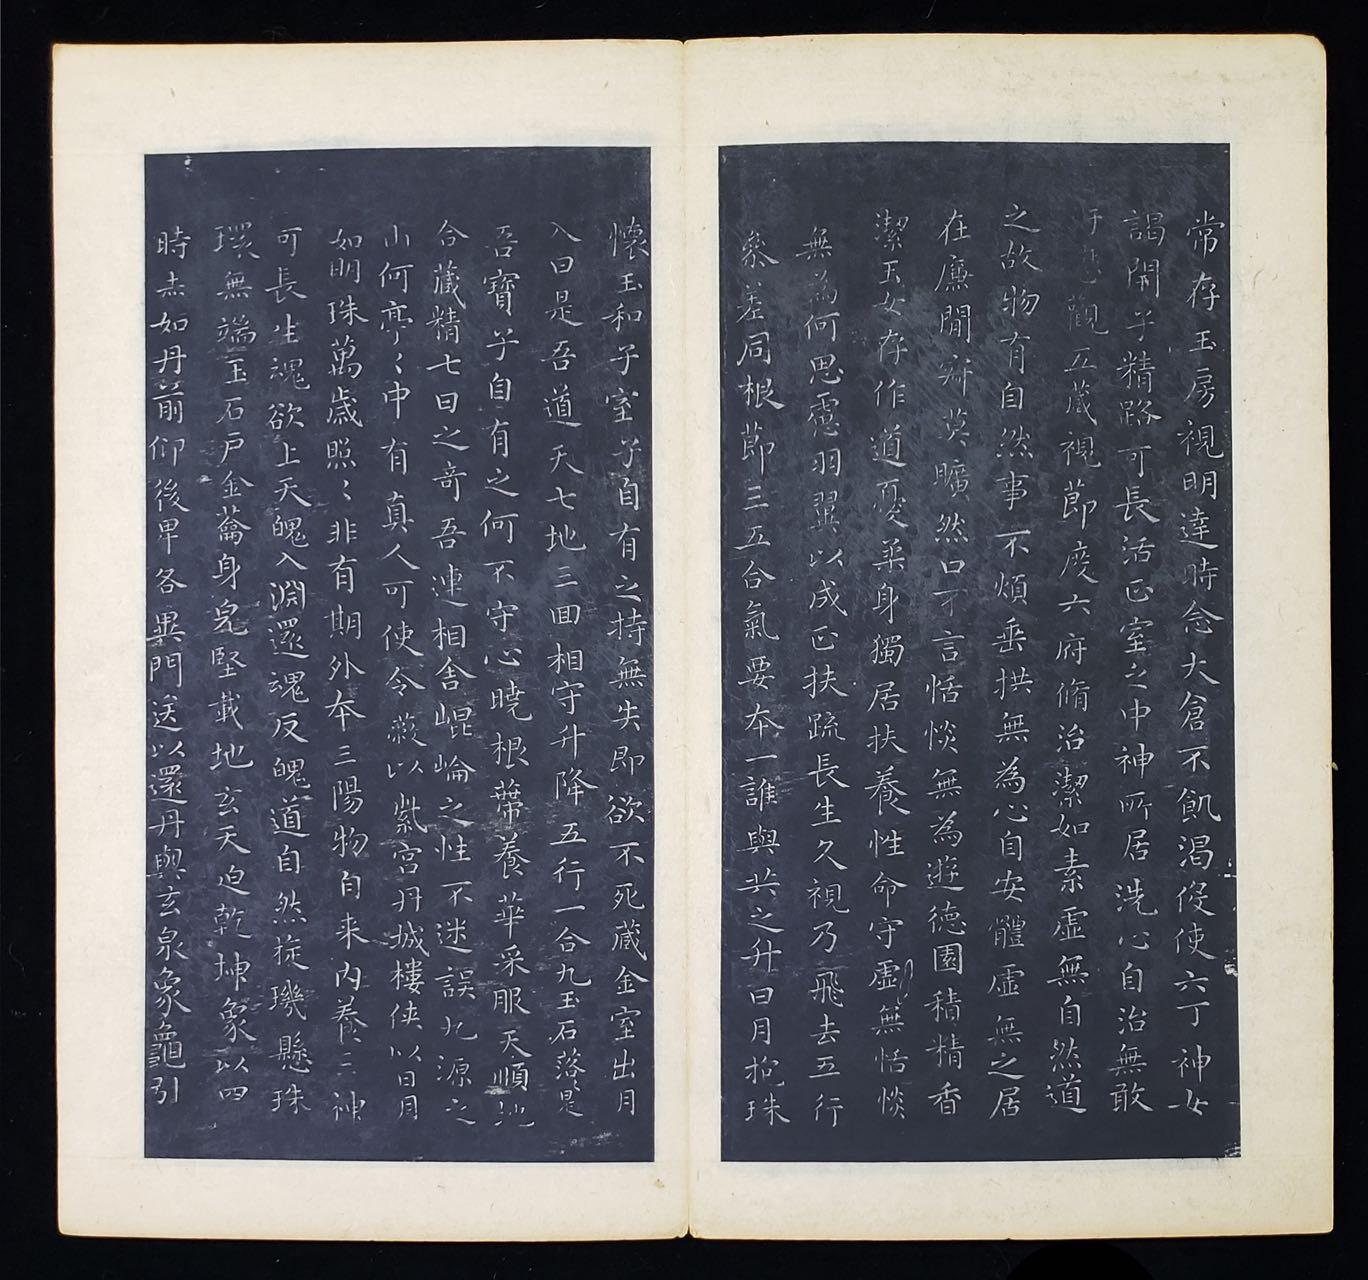 常存玉房視明達時念大倉不飢渴伇使六丁神女
謁閇子精路可長活正室之中神所居洗心自治無敢
汙歷觀五藏視節度六府脩治潔如素虛無自然道
之故物有自然事不煩垂拱無為心自安體虛無之居
在廉閒寂莫曠然口不言恬惔無為遊德園積精香
潔玉女存作道憂柔身獨居扶養性命守虛無恬惔
無為何思慮羽翼以成正扶疏長生久視乃飛去五行
參差同根節三五合氣要本一誰與共之升日月抱珠
懷玉和子室子自有之持無失即欲不死藏金室出月
入日是吾道天七地三回相守升降五行一合九玉石落〻是
吾寶子自有之何不守心曉根蔕養華采服天順地
合藏精七日之奇吾連相舍崐崘之性不迷誤九源之
山何亭〻中有真人可使令蔽以紫宮丹城樓俠以日月
如明珠萬歲照〻非有期外本三陽物自来內養三神
可長生魂欲上天魄入淵還魂反魄道自然㨁璣懸珠
環無端玉石戶金蘥身皃堅載地玄天迫乾坤象以四
時赤如丹前仰後卑各異門送以還丹與玄泉象龜引